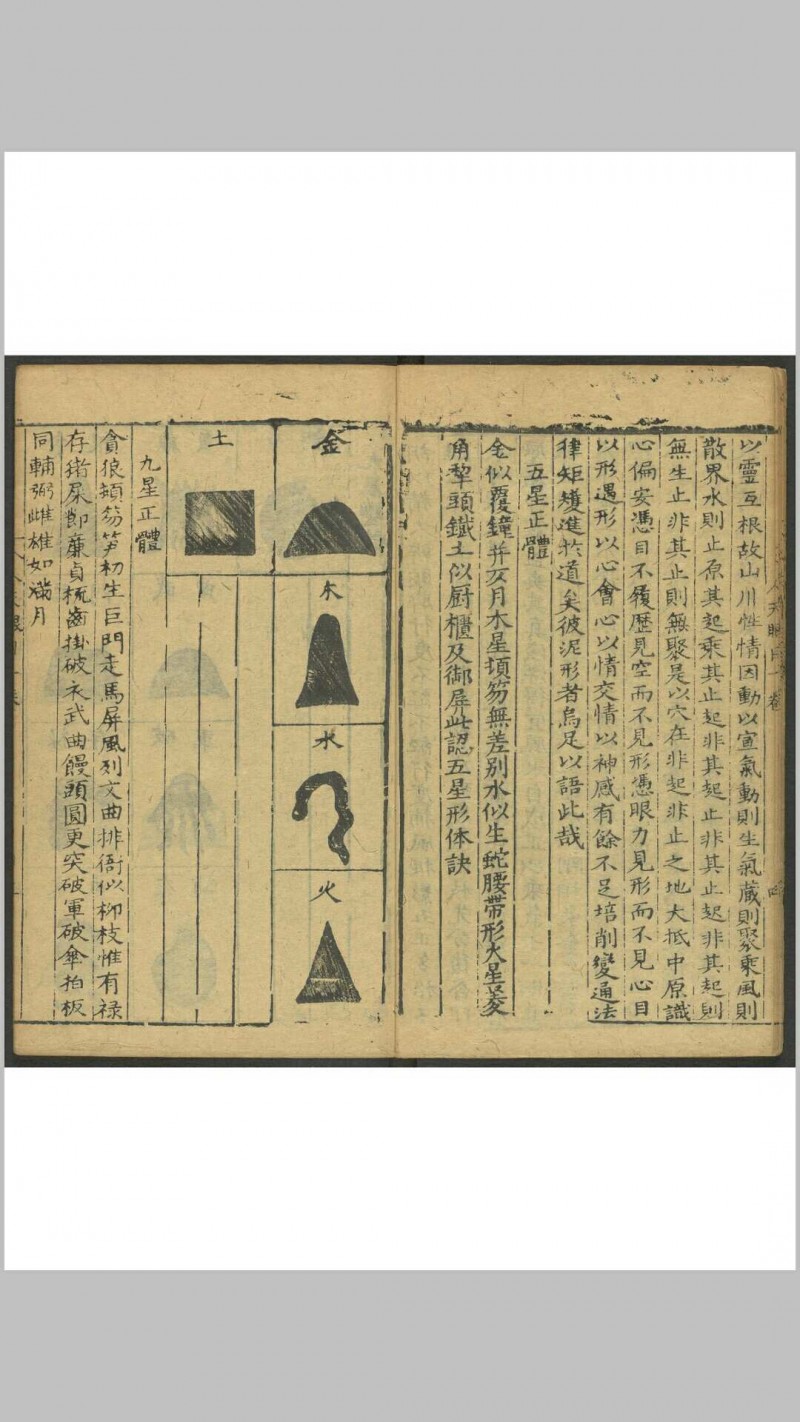 以靈互根故山川性情因動以宣氣動則生氣藏則聚乘風則
散界水則止原其起乘其止起非其起止非其止起非其起則
無生止非其止則無聚是以穴在非起非止之地大抵中原識
心偏安憑目不履歷見空而不見形憑眼力見形而不見心目
以形遇形以心會心以情交情以神感有餘不足培削變通法
律矩矱進於道矣彼泥形者烏足以語此哉
五星正體
金似覆鐘并仄月木星頓笏無差别水似生蛇腰帶形火星菱
角犁頭鐵土似厨櫃及御屏此認五星形体訣
金
木
水
火
土
九星正體
貪狼頓笏笋初生巨門走馬屏風列文曲排衙似柳枝惟有禄
存猪屎節廉貞梳齒掛破衣武曲饅頭圓更突破軍破傘拍板
同輔弼雌雄如滿月